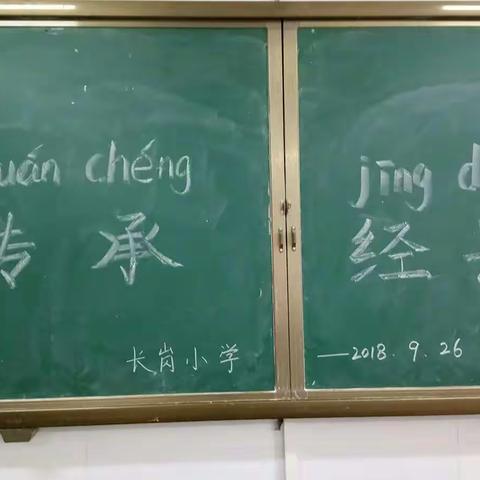 uán chéng jīng d
传 承 经
长岗小学 —2018.9.26